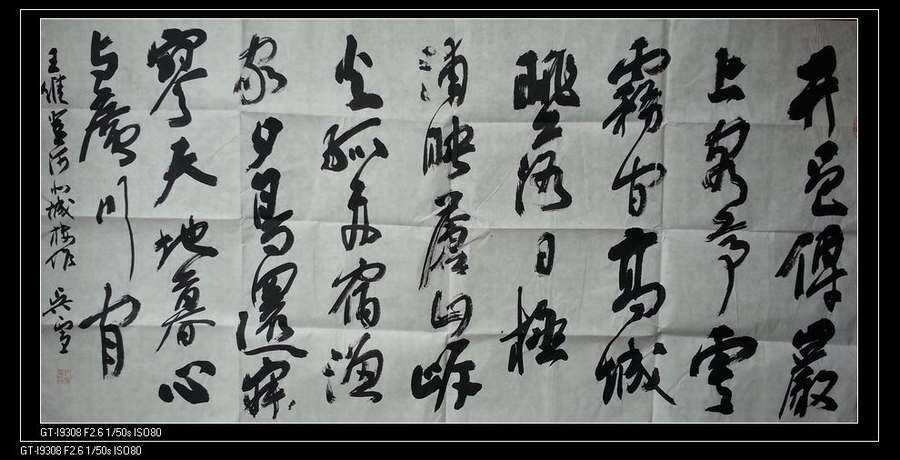 井邑傅巖
上客亭雲
霧間高城
眺落日極
浦映蒼山岸
火孤舟宿漁
家夕鳥還寂
寥天地暮心
与廣川閒
王維登河北城楼作 吴
GT-I9308 F2.6 1/50s ISO80
GT-I9308 F2.6 1/50s ISO80